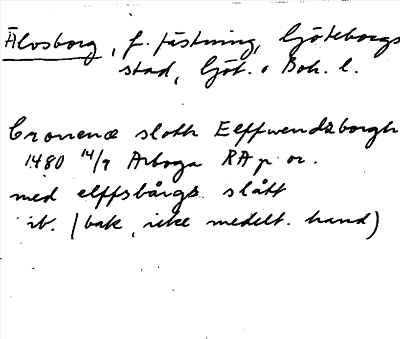 Älvsborg, f. fästning, Göteborgs
stad, Göt. o Boh. l.
Cronenæ sloth Elffwendzborgh
1480 14/9 Arboga RA p or.
med elffsbårgs slått
ib. (bak, icke medelt. hand)